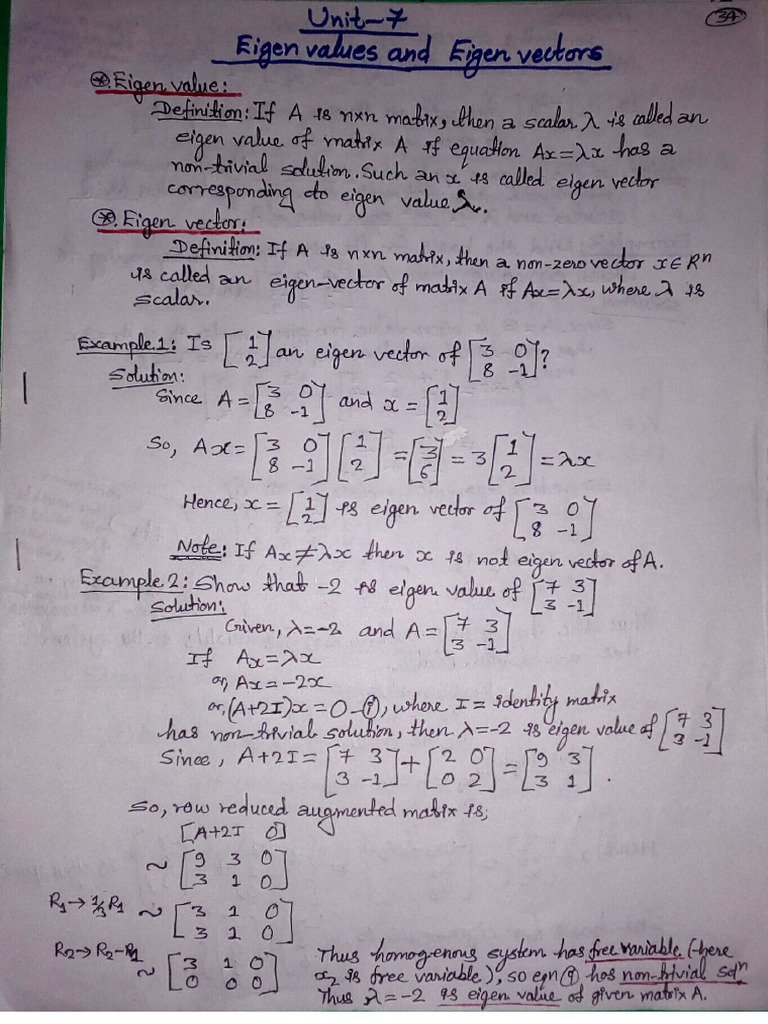 Unit-7
34
Eigen values and Eigen vectors
⊛. Eigen value:
Definition: If A is nxn matrix, then a scalar λ is called an
eigen value of matrix A if equation Ax=λx has a
non-trivial solution. Such an x is called eigen vector
corresponding to eigen value λ.
⊛. Eigen vector:
Definition: If A is nxn matrix, then a non-zero vector x∈Rⁿ
is called an eigen-vector of matrix A if Ax=λx, where λ is
scalar.
Example.1: Is [1; 2] an eigen vector of [3 0; 8 -1]?
Solution:
Since A = [3 0; 8 -1] and x = [1; 2]
So, Ax = [3 0; 8 -1] [1; 2] = [3; 6] = 3 [1; 2] = λx
Hence, x = [1; 2] is eigen vector of [3 0; 8 -1]
Note: If Ax≠λx then x is not eigen vector of A.
Example.2: Show that -2 is eigen value of [7 3; 3 -1]
Solution:
Given, λ=-2 and A = [7 3; 3 -1]
If Ax=λx
or, Ax=-2x
or, (A+2I)x = 0 –(i), where I = identity matrix
has non-trivial solution, then λ=-2 is eigen value of [7 3; 3 -1]
Since, A+2I = [7 3; 3 -1] + [2 0; 0 2] = [9 3; 3 1].
So, row reduced augmented matrix is;
[A+2I 0]
~ [9 3 0; 3 1 0]
R₁→⅓R₁ ~ [3 1 0; 3 1 0]
R₂→R₂-R₁ ~ [3 1 0; 0 0 0]
Thus homogenous system has free variable (here
x₂ is free variable), so eqn (i) has non-trivial solⁿ
Thus λ=-2 is eigen value of given matrix A.